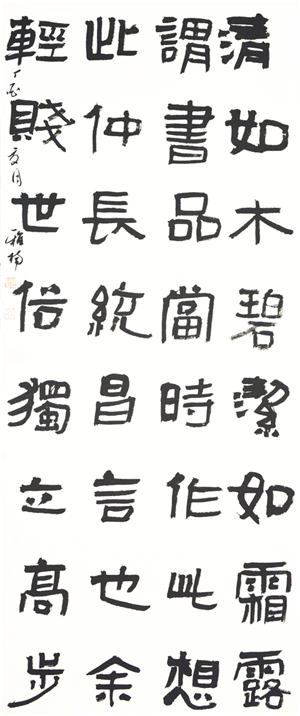 清如木碧潔如霜露
輕賤世俗獨立高步
此仲長統昌言也余
謂書品當時作此想
丁酉夏月雅楠